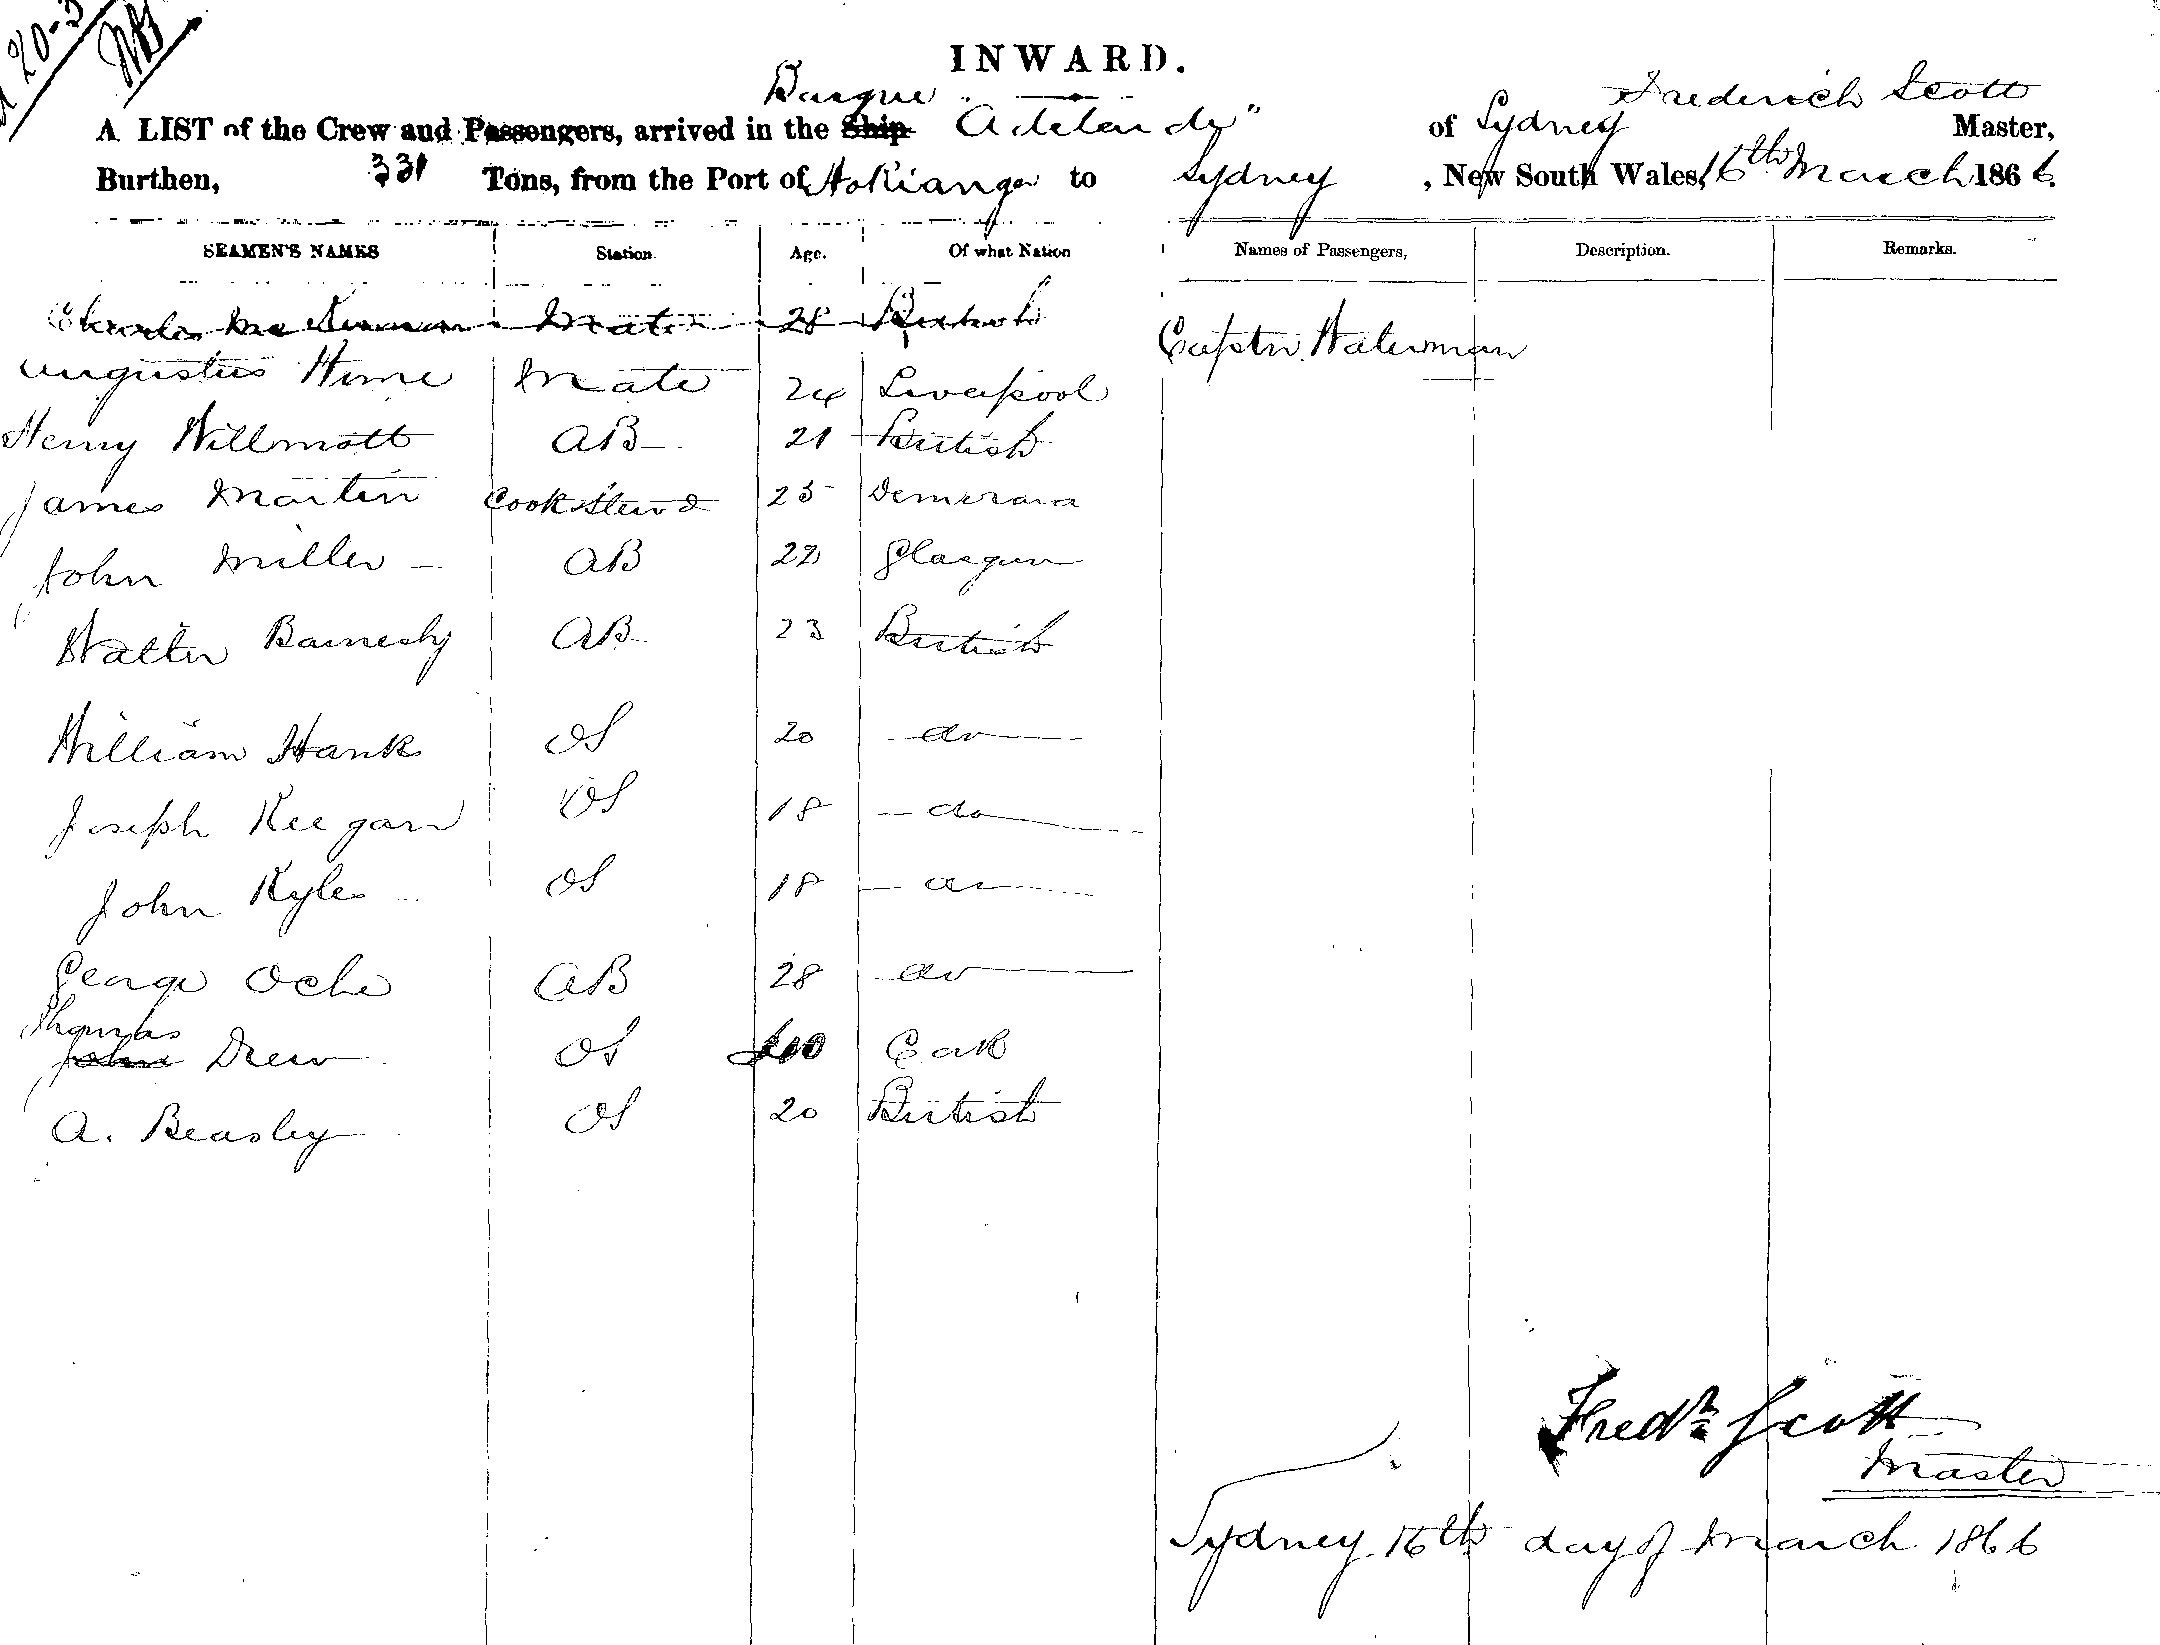 20-3
INWARD.
Barque
A LIST of the Crew and Passengers, arrived in the Ship "Adelaide" of Sydney Frederich Scott Master,
Burthen, 331 Tons, from the Port of Hokianga to Sydney, New South Wales, 16th March 1866.
SEAMEN'S NAMES Station. Age. Of what Nation Names of Passengers, Description. Remarks.
Charles Mate 28 British Captn. Waterman
Augustus Hime Mate 24 Liverpool
Henry Willmott AB 21 British
James Martin Cook & Stewd 25 Demerara
John Miller AB 22 Glasgow
Walter Barnesby AB 23 British
William Hank OS 20 do
Joseph Keegan OS 18 do
John Kyles OS 18 do
George Oche AB 28 do
Thomas
John Drew OS Cork
A. Beasley OS 20 British
Fredk Scott
Master
Sydney 16th day of March 1866